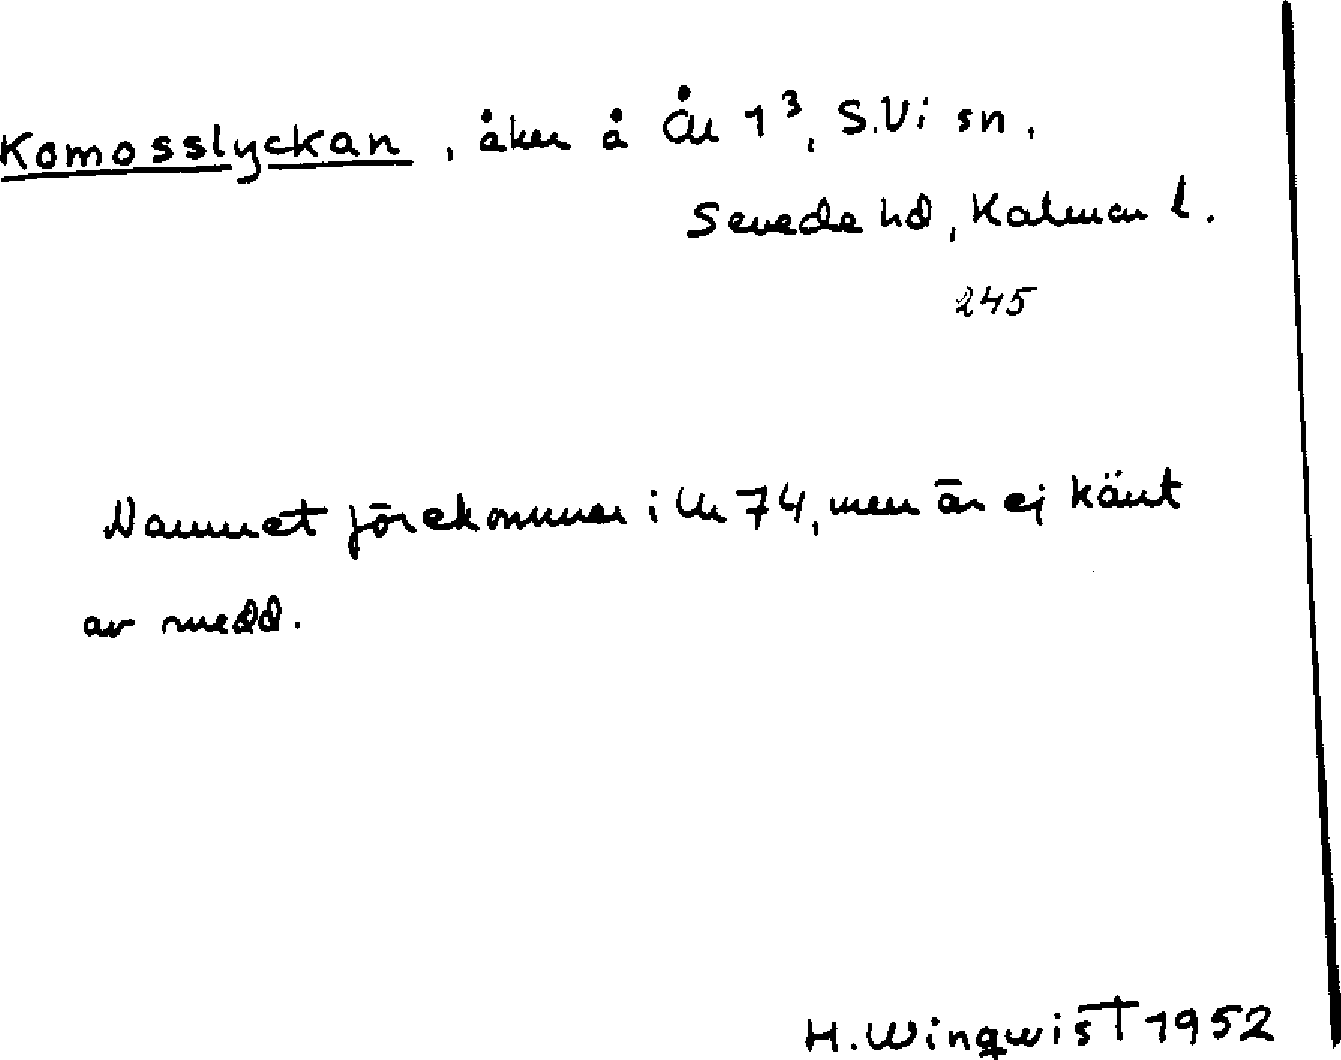 Komosslyckan, åker å År 1³, S.Vi sn,
Sevede hd, Kalmar l.
245
Namnet förekommer i Ur 74, men är ej känt
av medd.
H.Wingwist 1952